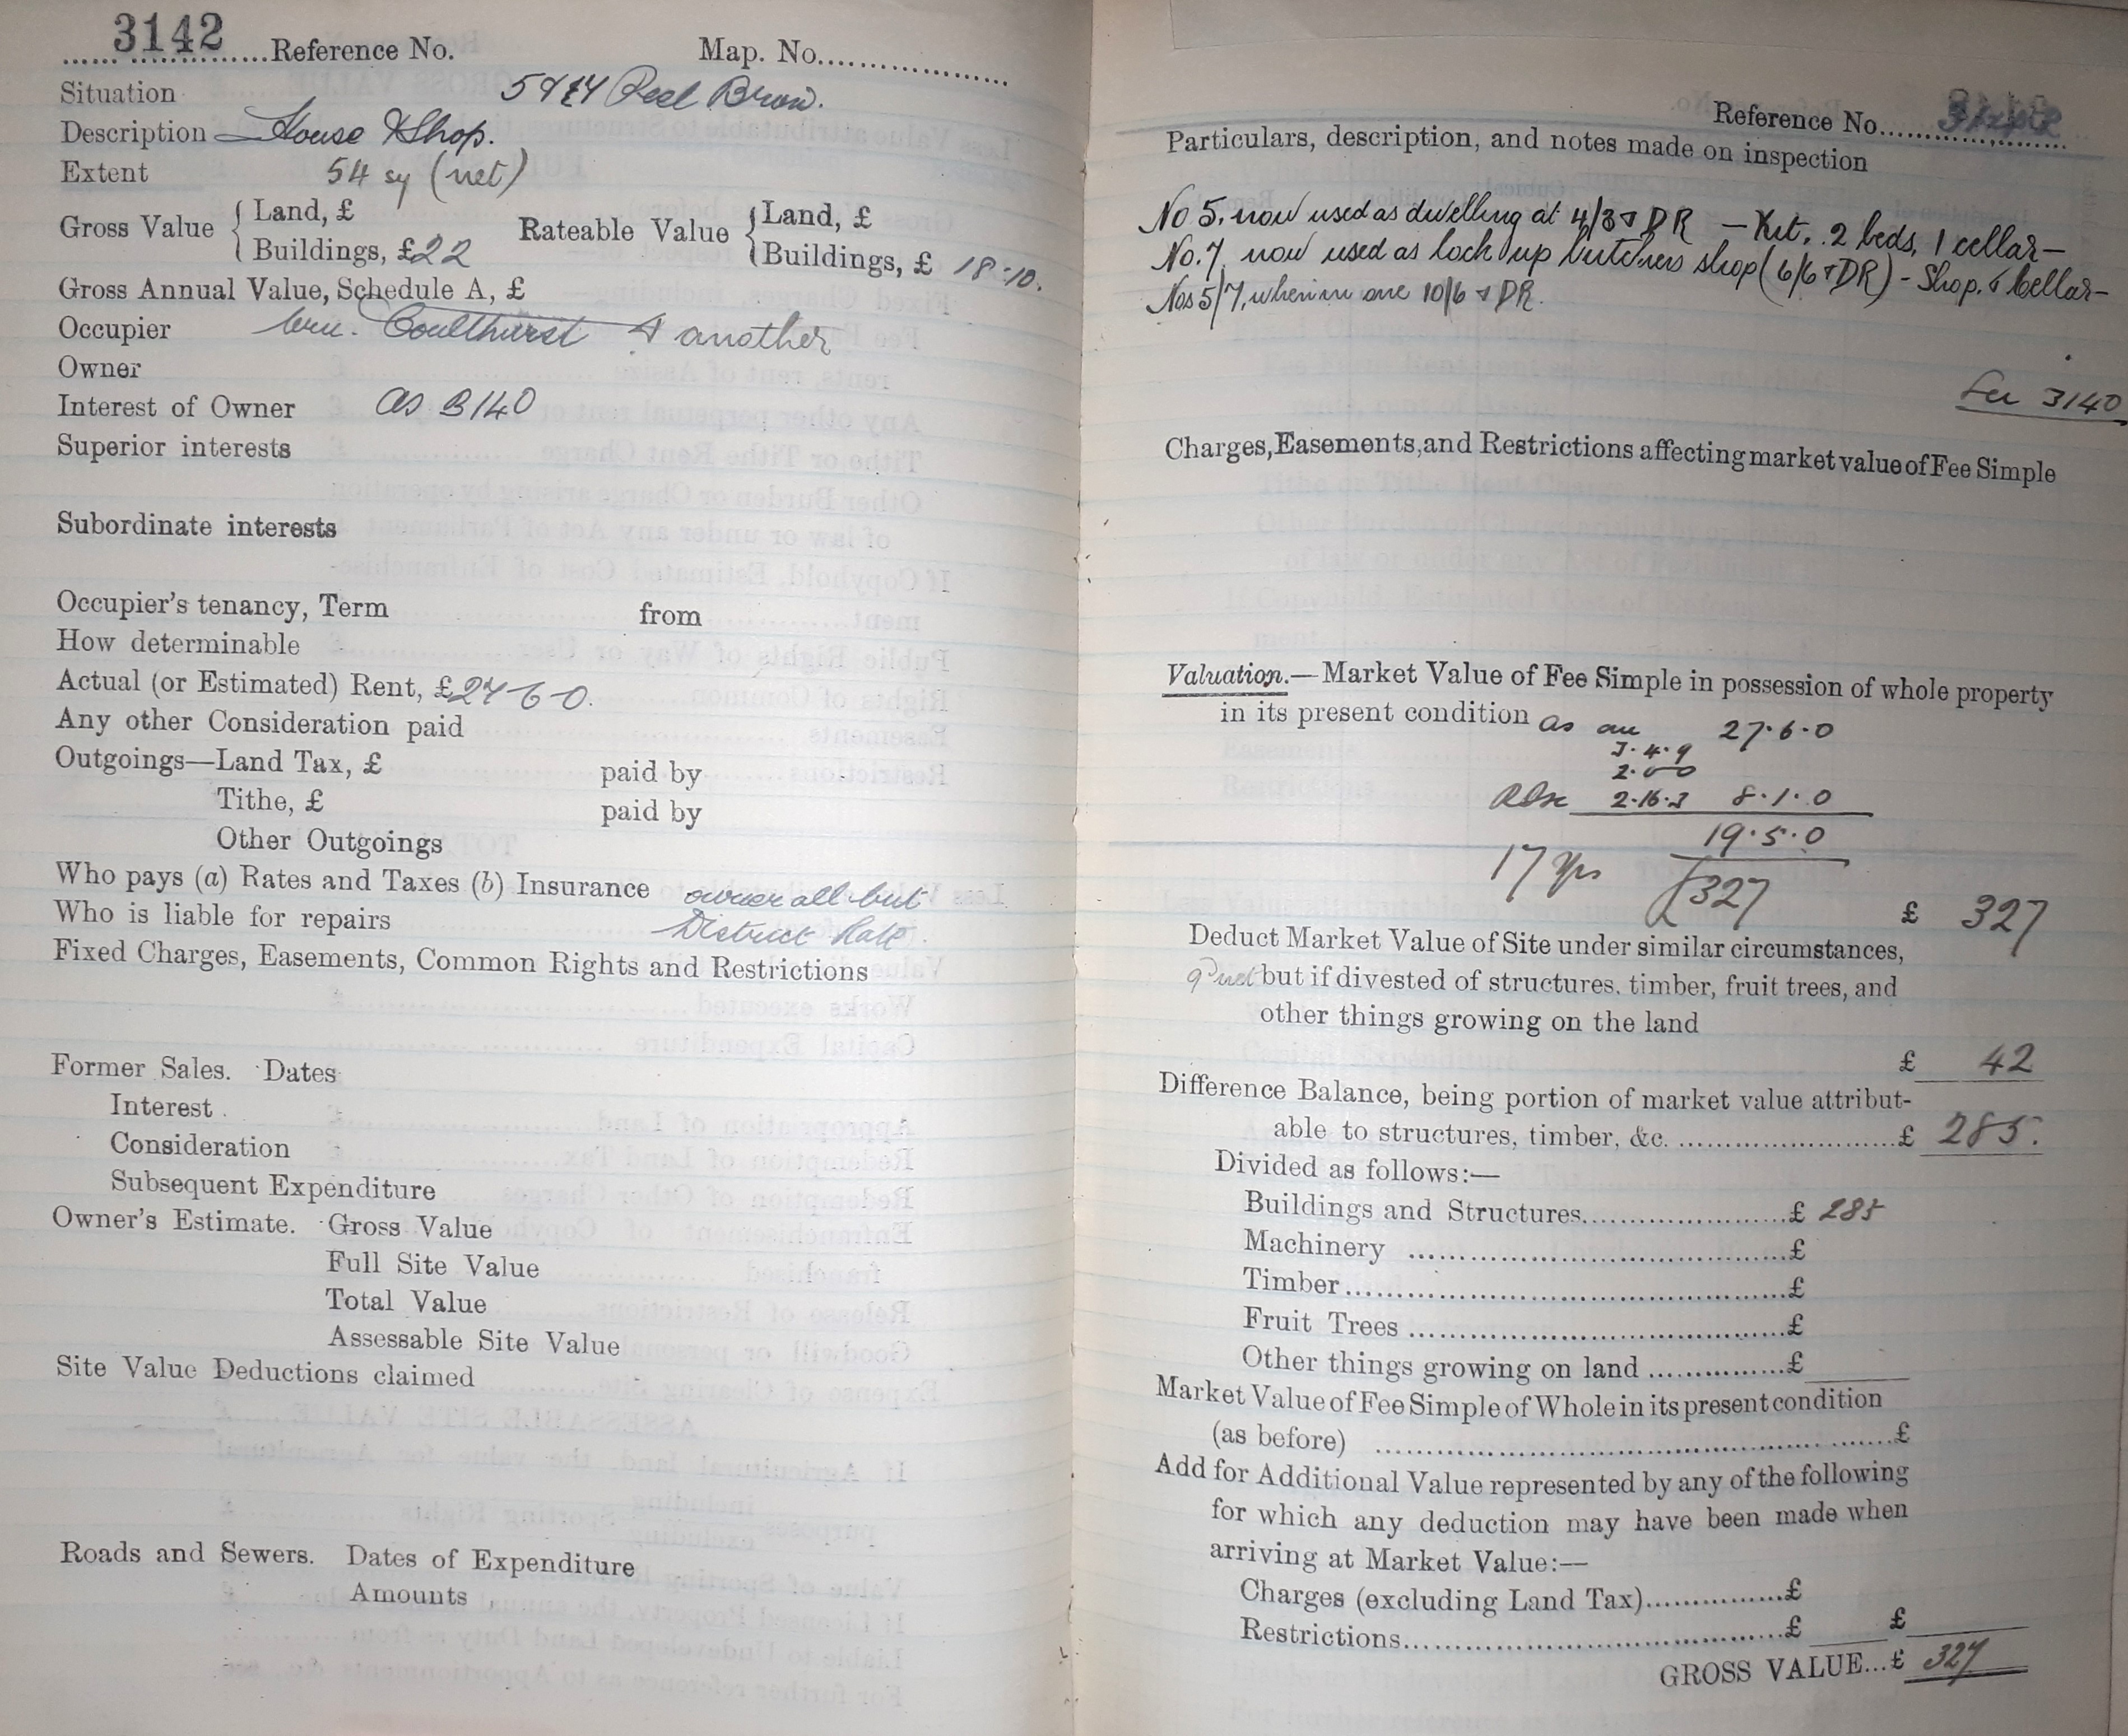 3142 Reference No. Map. No.
Situation 5 & 7 Peel Brow.
Description House & Shop.
Extent 54 sy (net)
Gross Value { Land, £ Rateable Value { Land, £
Buildings, £22 Buildings, £ 18-10.
Gross Annual Value, Schedule A, £
Occupier Wm. Coulthurst & another
Owner
Interest of Owner as 3140
Superior interests
Subordinate interests
Occupier's tenancy, Term from
How determinable
Actual (or Estimated) Rent, £27-6-0.
Any other Consideration paid
Outgoings—Land Tax, £ paid by
Tithe, £ paid by
Other Outgoings
Who pays (a) Rates and Taxes (b) Insurance owner all but
Who is liable for repairs District Rate.
Fixed Charges, Easements, Common Rights and Restrictions
Former Sales. Dates
Interest
Consideration
Subsequent Expenditure
Owner's Estimate. Gross Value
Full Site Value
Total Value
Assessable Site Value
Site Value Deductions claimed
Roads and Sewers. Dates of Expenditure
Amounts
Reference No. 3142
Particulars, description, and notes made on inspection
No 5. now used as dwelling at 4/3 & DR — Kit, 2 beds, 1 cellar—
No. 7. now used as lock up butchers shop (6/6 & DR) - Shop & Cellar-
Nos 5/7, when in one 10/6 & DR.
See 3140
Charges, Easements, and Restrictions affecting market value of Fee Simple
Valuation.—Market Value of Fee Simple in possession of whole property
in its present condition as an 27.6.0
3.4.9
2.0.0
2.16.3 8.1.0
19.5.0
17 yrs £327 £ 327
Deduct Market Value of Site under similar circumstances,
but if divested of structures, timber, fruit trees, and
other things growing on the land
£ 42
Difference Balance, being portion of market value attribut-
able to structures, timber, &c. £ 285.
Divided as follows:—
Buildings and Structures £ 285
Machinery £
Timber £
Fruit Trees £
Other things growing on land £
Market Value of Fee Simple of Whole in its present condition
(as before) £
Add for Additional Value represented by any of the following
for which any deduction may have been made when
arriving at Market Value:—
Charges (excluding Land Tax) £
Restrictions £ £
GROSS VALUE...£ 327